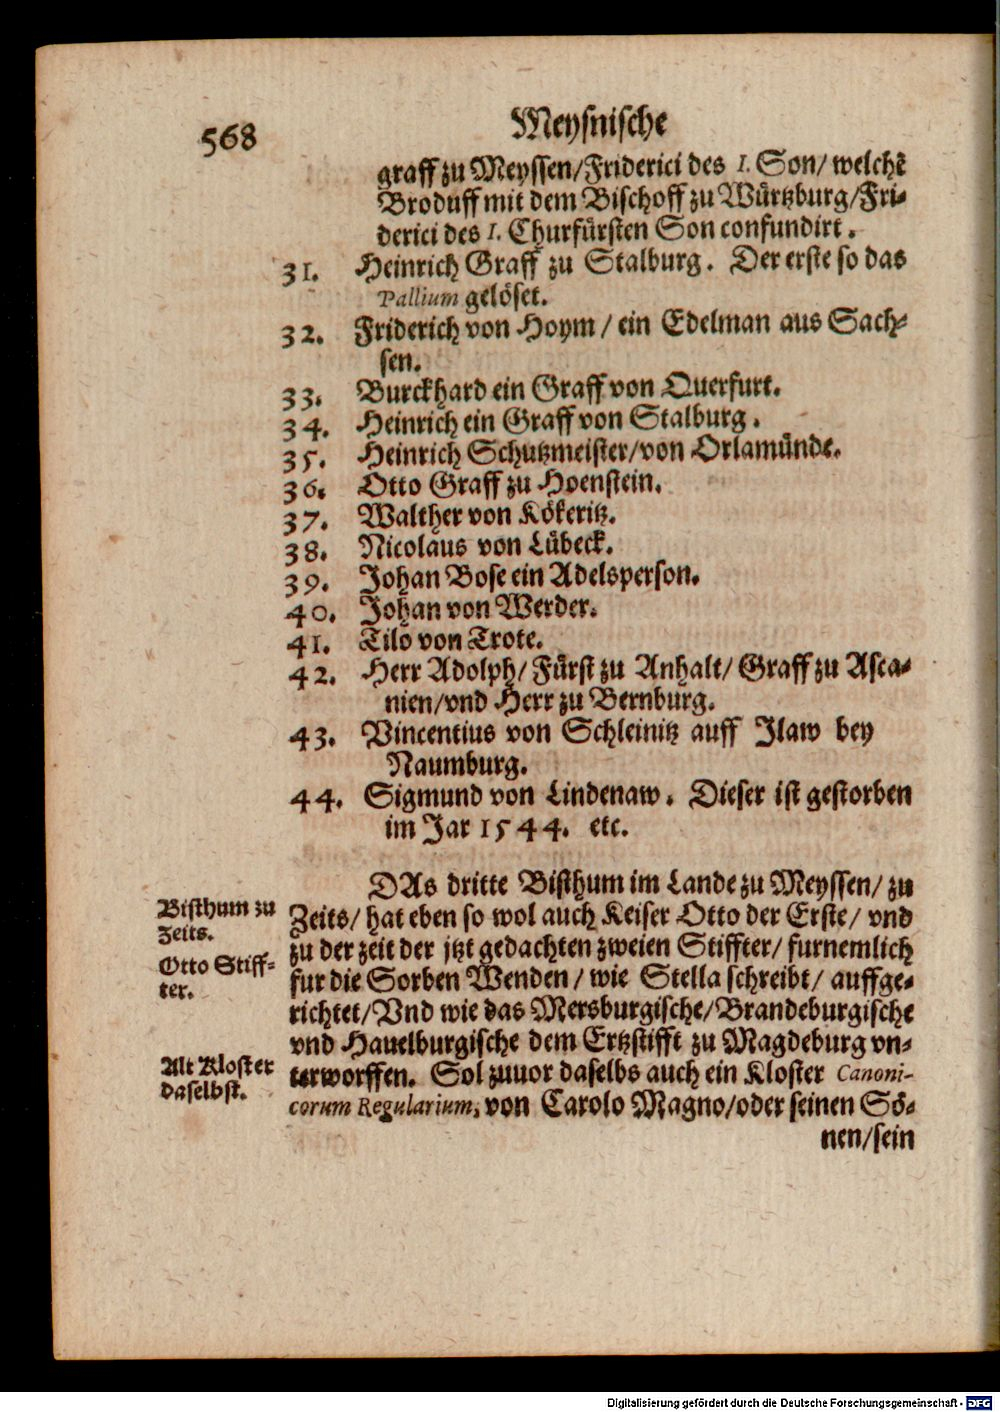 568
Meysnische
graff zu Meyssen/Friderici des I. Son/ welchẽ
Broduff mit dem Bischoff zu Würtzburg/Fri-
derici des I. Churfürsten Son confundirt.
31. Heinrich Graff zu Stalburg. Der erste so das
Pallium gelöset.
32. Friderich von Hoym / ein Edelman aus Sach-
sen.
33. Burckhard ein Graff von Querfurt.
34. Heinrich ein Graff von Stalburg.
35. Heinrich Schutzmeister/von Orlamünde.
36. Otto Graff zu Hoenstein.
37. Walther von Kökeritz.
38. Nicolaus von Lübeck.
39. Johan Bose ein Adelsperson.
40. Johan von Werder.
41. Tilo von Trote.
42. Herr Adolph/ Fürst zu Anhalt/ Graff zu Asca-
nien/vnd Herr zu Bernburg.
43. Vincentius von Schleinitz auff Ilaw bey
Naumburg.
44. Sigmund von Lindenaw. Dieser ist gestorben
im Jar 1544. etc.
DAs dritte Bisthum im Lande zu Meyssen/ zu
Bisthum zu
Zeits.
Zeits/ hat eben so wol auch Keiser Otto der Erste/ vnd
zu der zeit der jtzt gedachten zweien Stiffter/ furnemlich
Otto Stiff-
ter.
fur die Sorben Wenden / wie Stella schreibt/ auffge-
richtet/Vnd wie das Mersburgische/Brandeburgische
vnd Hauelburgische dem Ertzstifft zu Magdeburg vn-
Alt Kloster
daselbst.
terworffen. Sol zuuor daselbs auch ein Kloster Canoni-
corum Regularium, von Carolo Magno/oder seinen Sö-
nen/sein
Digitalisierung gefördert durch die Deutsche Forschungsgemeinschaft - DFG